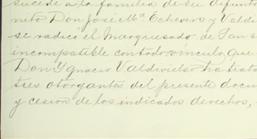 sucede a la familia de su difunto
nieto Don José Mª Echeverz y Valdi
se radicó el Marquesado de San
incompatible con todo vínculo, que
Don Ygnacio Valdivielso ha trata
tres otorgantes del presente docu
y cesión de los indicados derechos,